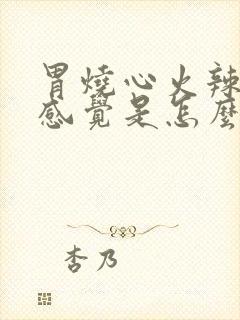 胃燒心火辣
感覺是怎麼
杏乃